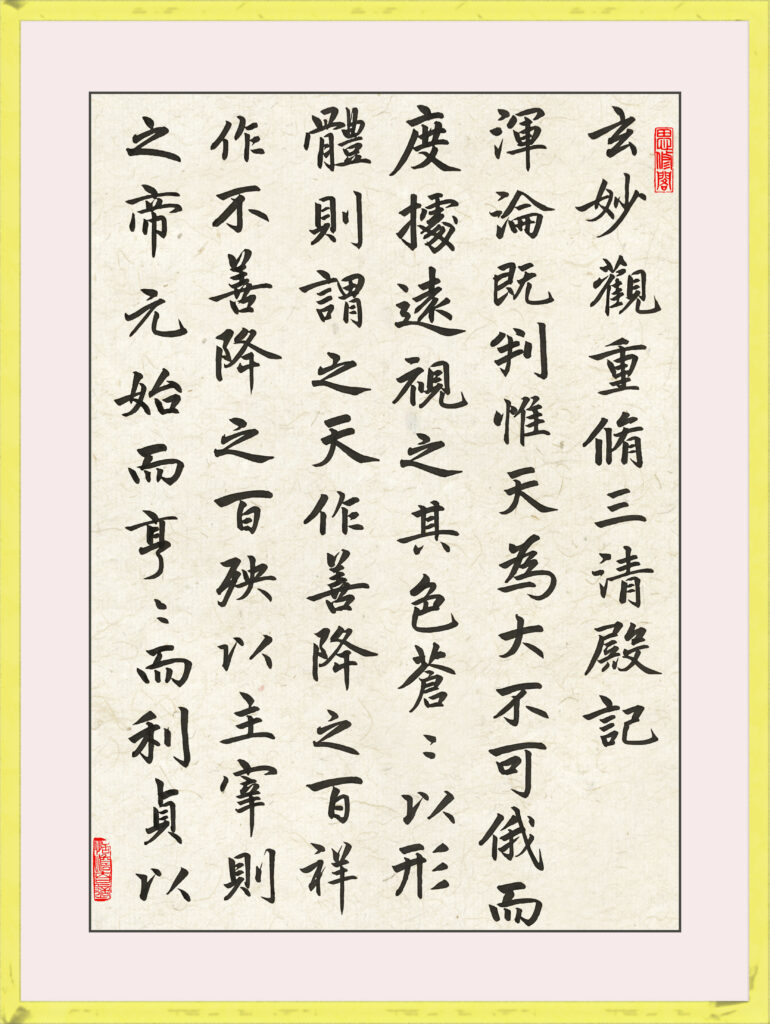 思修閣
玄妙觀重脩三清殿記
渾淪既判惟天為大不可俄而
度據遠視之其色蒼〻以形
體則謂之天作善降之百祥
作不善降之百殃以主宰則
之帝元始而亨〻而利貞以